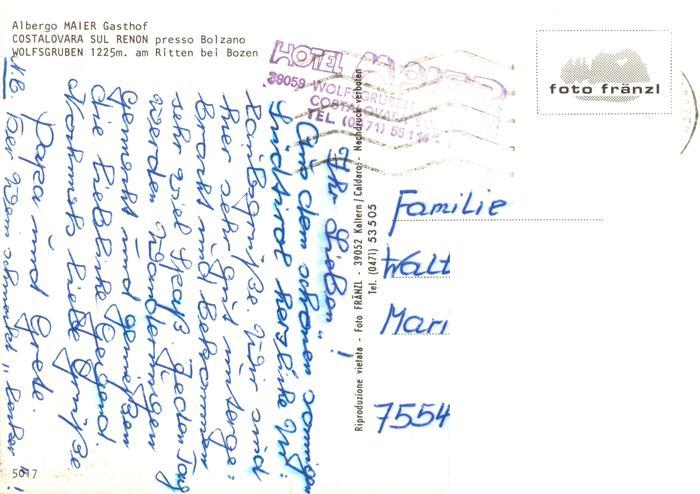 Albergo MAIER Gasthof
COSTALOVARA SUL RENON presso Bolzano
WOLFSGRUBEN 1225m. am Ritten bei Bozen
HOTEL MAIER
39059 WOLFSGRUBEN
COSTALOVARA
TEL. (0471) 551
foto fränzl
Riproduzione vietata - Foto FRÄNZL - 39052 Kaltern/Caldaro - Nachdruck verboten
Tel. (0471) 53505
Familie
Walt
Mari
7554
Ihr Lieben!
Aus dem schönen sonnigen
Südtirol herzliche
Wir sind
hier sehr gut unterge-
bracht und bekommen
sehr viel Jeden Tag
werden Wanderungen
gemacht und genießen
die liebliche Gegend.
Nochmals liebe Grüße
Papa und Grete.
N.B. Der Wein schmeckt "lecker"!
5017